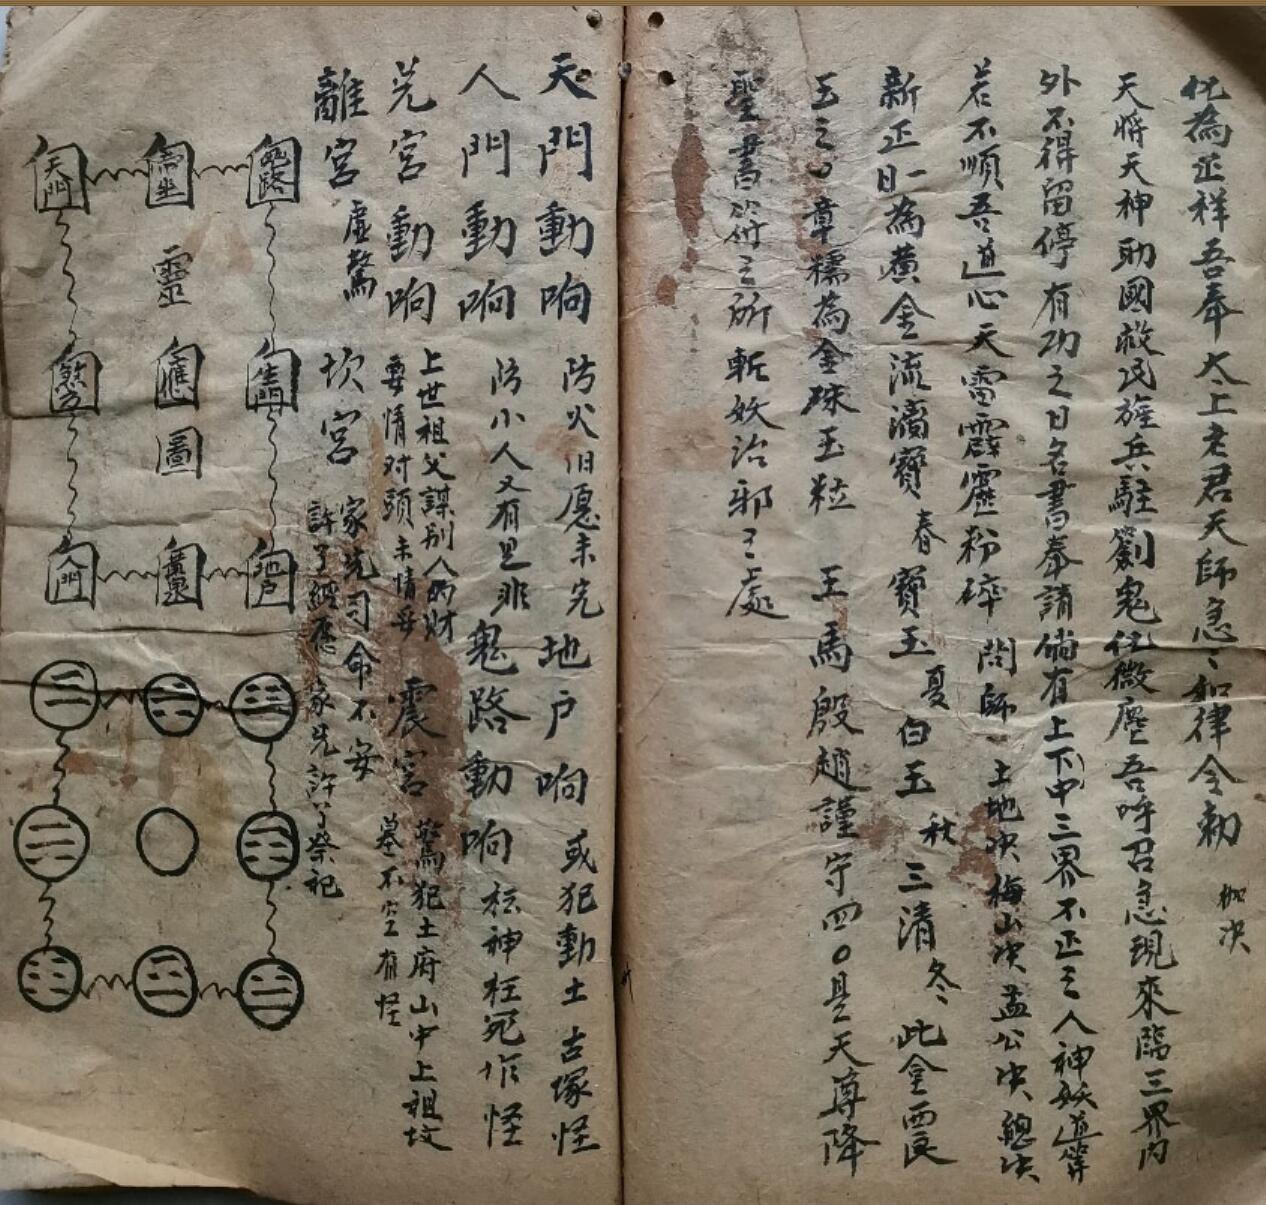 化為正祥吾奉太上老君天師急〻如律令勅 加决
天將天神助國救民旌兵駐劄鬼化微塵吾呼召急現來臨三界內
外不得留停有功之日名書奉請倘有上下中三界不正之人神妖道等
若不順吾道心天雷霹靂粉碎 問師 土地决梅山决孟公决總决
新正日一為黄金流滴寳 春 寳玉 夏 白玉 秋 三清 冬 此金
玉之 章糯為金珠玉粒 王馬殷趙謹守四〇是天尊降
聖書 之所斬妖治邪之處
天門動响 防火旧愿未完 地户响 或犯動土古塚怪
人門動响 防小人又有是非 鬼路動响 枉神枉死作怪
兑宮動响 上世祖父謀别人的财
要情对頭未情妥 震宮 驚犯土府山中上祖坟
墓不空有怪
離宮 虛驚 坎宮 家先司命不安
許了經愿 家先許了祭祀
鬼路
天門
靈
生門
應
圖
地户
黄泉
人門